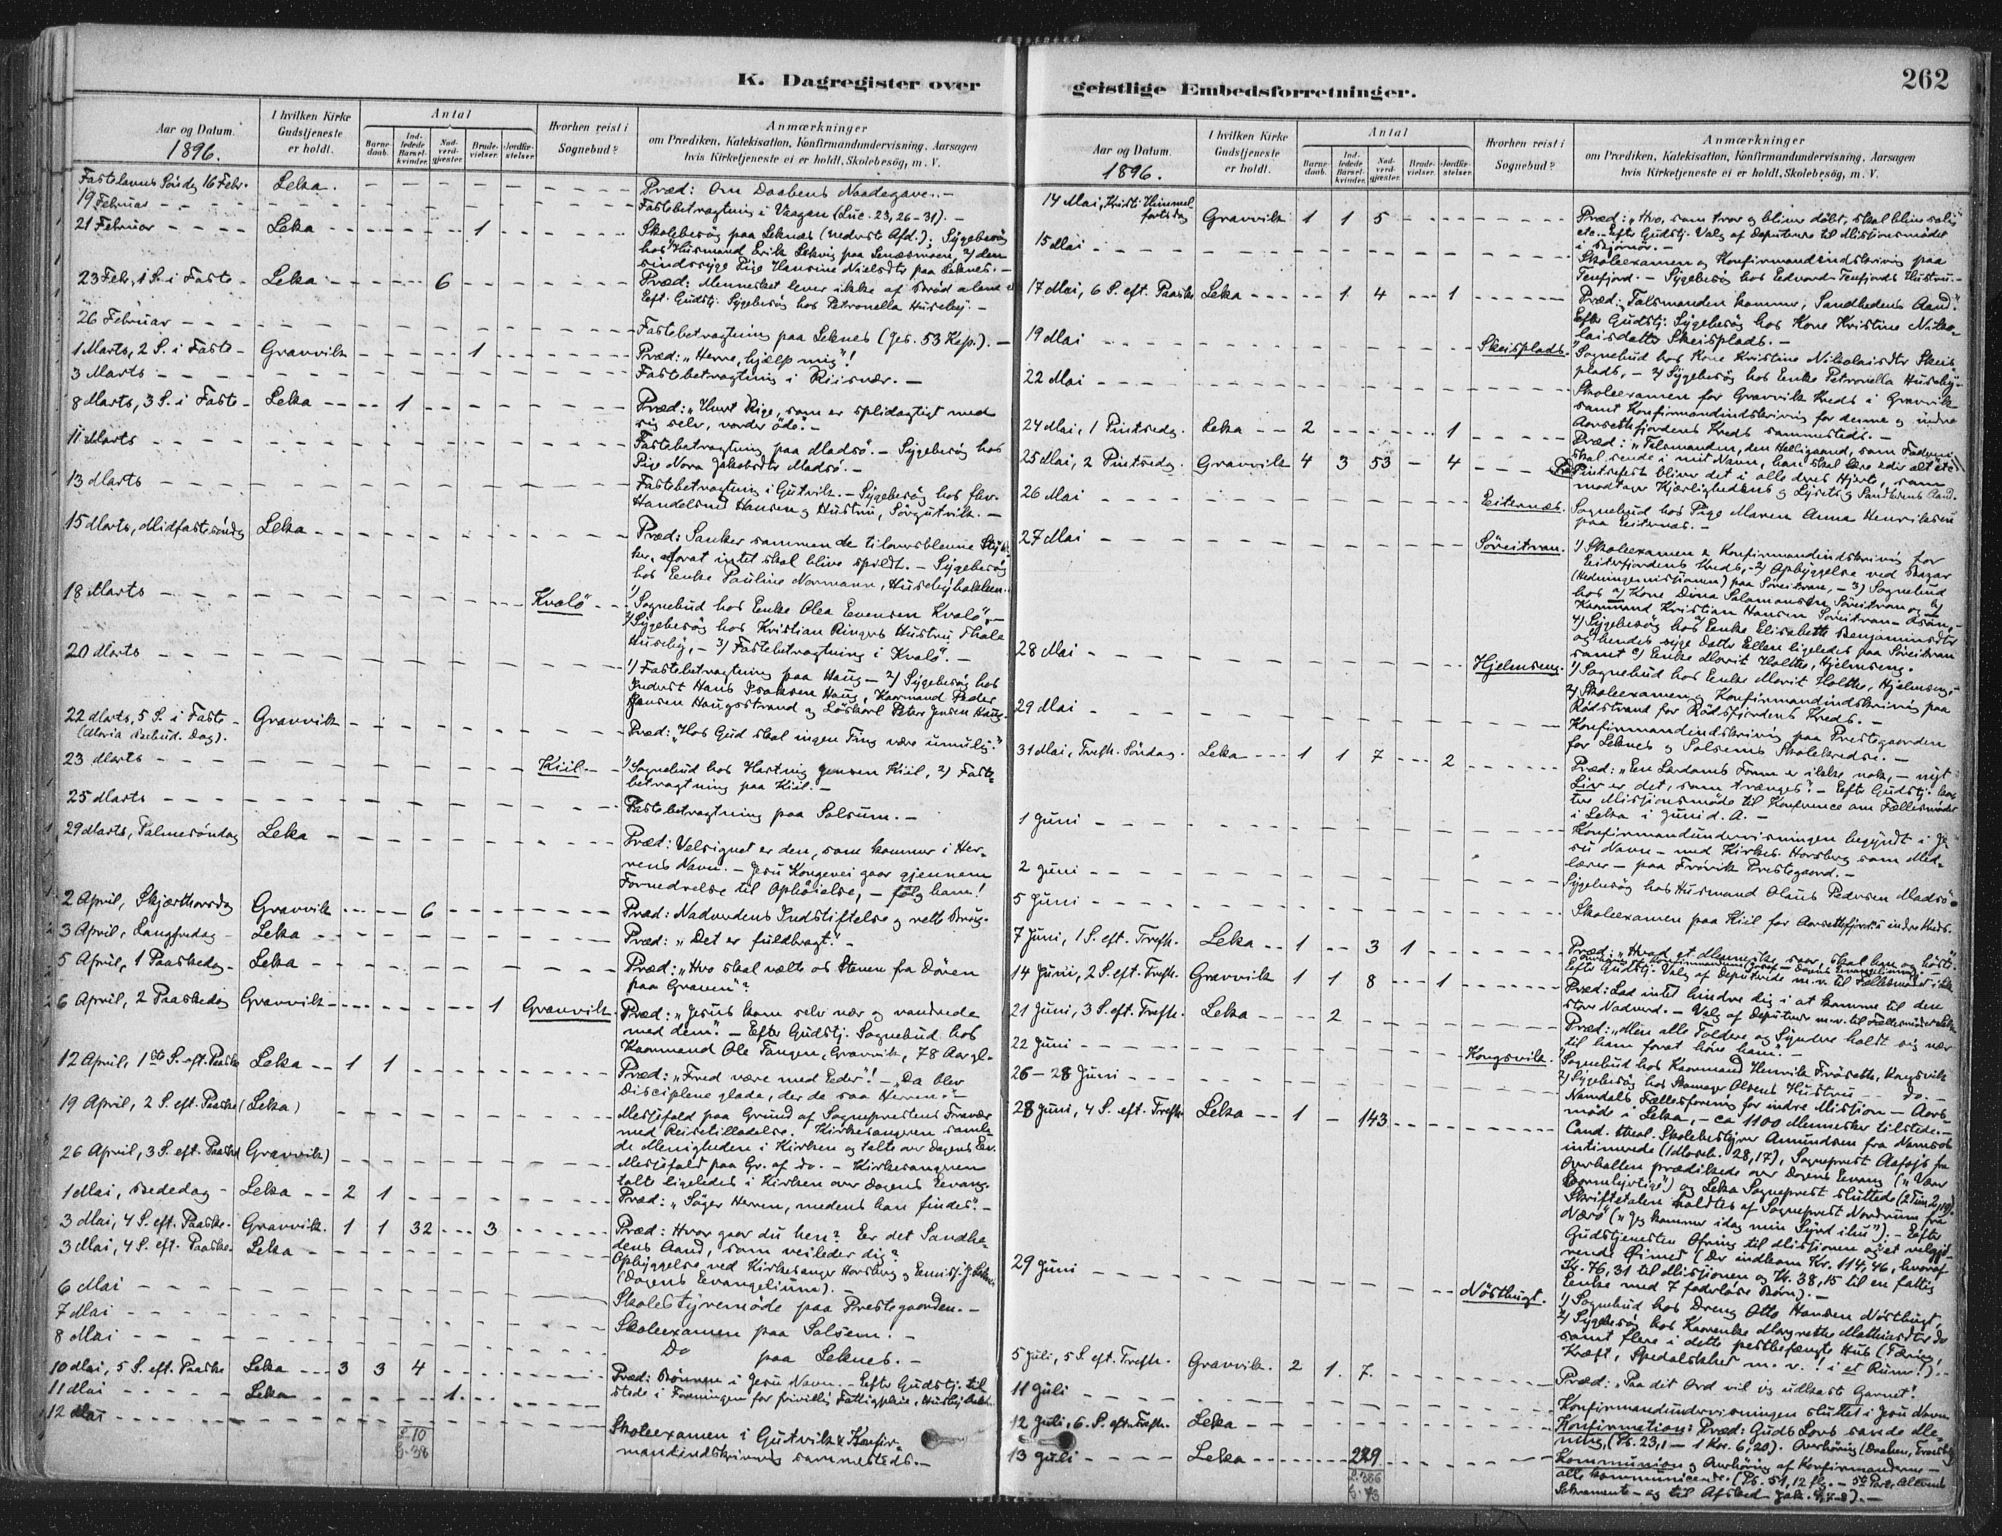 K. Dagregister over
Aar og Datum.
1896.
I hvilken Kirke
Gudstjeneste
er holdt.
Antal
Barne-
daab.
Ind-
ledede
Barsel-
kvinder.
Nad-
verd-
gjæster.
Brude-
vielser.
Jordfæ-
stelser.
Hvorhen reist i
Sognebud?
Anmærkninger
om Prædiken, Katekisation, Konfirmandundervisning, Aarsagen
hvis Kirketjeneste ei er holdt, Skolebesøg, m. V.
Fastelavns Søndag 16 Febr. Leka. Præd: Om Daabens Naadegave. –
19 Februar Fastebetragtning i Vaagan (Luc. 23, 26–31). –
21 Februar Leka 1 Skolebesøg paa Leknes (nederst Afd.); Sygebesøg
hos Husmand Erik Lekvig paa Lenæsmoen, 2) den
sindssyge Pige Hansine Nielsdtr paa Leknes. –
23 Feb, 1 S. i Faste Leka 6 Præd: Mennesket lever ikke af Brød alene
Eft. Gudstj. Sygebesøg hos Petronella Huseby. –
26 Februar Fastebetragtning paa Leknes (Jes. 53 Kap.). –
1 Marts, 2 S. i Faste Gravvik 1 Præd: "Herre, hjælp mig"!
3 Marts Fastebetragtning i Riisvær. –
8 Marts, 3 S. i Faste Leka 1 Præd: "Hvert Rige, som er splidagtigt med
sig selv, vorder øde. –
11 Marts Fastebetragtning paa Madsø. – Sygebesøg hos
Pige Nora Jakobsdtr Madsø. –
13 Marts Fastebetragtning i Gutvik. – Sygebesøg hos
Handelsmd Hansen og Hustru, Sørgutvik. –
15 Marts, Midfastsøndag Leka Præd: Sanker sammen de tiloversblevne Styk-
ker, forat intet skal blive spildt. – Sygebesøg
hos Enke Pauline Normann, Husebybakken.
18 Marts Kvalø 1) Sognebud hos Enke Olea Evensen Kvalø, –
2) Sygebesøg hos Kristian Ringers Hustru
Huseby, – 3) Fastebetragtning i Kvalø. –
20 Marts 1) Fastebetragtning paa Haug – 2) Sygebesøg hos
Inderst Hans Isaksen Haug, Kaarmand Peder
Jensen Haugsstrand og Løskarl Peter Jensen Haug.
22 Marts, 5 S. i Faste Gravvik Præd: "Hos Gud skal ingen Ting være umulig."
(Maria Bebud. Dag).
23 Marts Kiil 1) Sognebud hos Hartvig Jensen Kiil, 2) Faste-
betragtning paa Kiil. –
25 Marts Fastebetragtning paa Solsum. –
29 Marts, Palmesøndag Leka Præd: Velsignet er den, som kommer i Her-
rens Navn. – Jesu Kongevei gaar gjennem
Fornedrelse til Ophøielse, – følg ham!
2 April, Skjærthorsdag Gravvik 6 Præd: Nadverdens Indstiftelse og rett Brug.
3 April, Langfredag Leka Præd: "Det er fuldbragt." –
5 April, 1 Paaskedag Leka Præd: "Hvo skal vælte os Stenen fra Døren
paa Graven"?
6 April, 2 Paaskedag Gravvik 1 Gravvik Præd: "Jesus kom selv nær og vandrede
med dem". – Efter Gudstj. Sognebud hos
Kaarmand Ole Tangen, Gravvik, 78 Aar gl.
12 April, 1ste S. eft. Paaske Leka 1 1 Præd: "Fred være med Eder"! – "Da blev
Disciplene glade, der de saa Herren". –
19 April, 2 S. eft. Paaske (Leka) Messefald paa Grund af Sogneprestens Fravær
med Reisetilladelse. Kirkesangeren samle-
de Menigheden i Kirken og talte over Dagens Ev.
26 April, 3 S. eft. Paaske (Gravvik) Messefald paa Gr. af do. – Kirkesangeren
talte ligeledes i Kirken over Dagens Evang.
1 Mai, Bededag Leka 2 1 Præd: "Søger Herren, medens han findes". –
3 Mai, 4 S. eft. Paaske. Gravvik. 1 1 32 3 Præd: Hvor gaar du hen? Er det Sandhe-
dens Aand, som veileder dig?
3 Mai, 4 S. eft. Paaske. Leka Opbyggelse ved Kirkesanger Horsberg og
(Dagens Evangelium). –
6 Mai Skolestyremøde paa Prestegaarden. –
7 Mai Skoleexamen paa Solsem. –
8 Mai Do paa Leknes. –
10 Mai, 5 S. eft. Paaske Leka 3 3 4 Præd: Bønnen i Jesu Navn. – Efter Gudstj. til
11 Mai Leka 1. stede i Foreningen for frivillig Fattigpleie,
12 Mai Skoleexamen i Gutvik & Konfir-
mandindskrivning sammesteds. –
L. 10
G. 38
geistlige Embedsforretninger.
262
Aar og Datum.
1896.
I hvilken Kirke
Gudstjeneste
er holdt.
Antal
Barne-
daab.
Ind-
ledede
Barsel-
kvinder.
Nad-
verd-
gjæster.
Brude-
vielser.
Jordfæ-
stelser.
Hvorhen reist i
Sognebud?
Anmærkninger
om Prædiken, Katekisation, Konfirmandundervisning, Aarsagen
hvis Kirketjeneste ei er holdt, Skolebesøg, m. V.
14 Mai, Kristi Himmel-
fartsdag Gravvik 1 1 5 Præd: "Hvo, som tror og bliver døbt, skal blive salig
etc. – Efter Gudstj. Valg af Deputerte til Missionsmødet
i Bjørnør. –
15 Mai Skoleexamen og Konfirmandindskrivning paa
Terfjord. – Sygebesøg hos Edvard Terfjords Hustru. –
17 Mai, 6 S. eft. Paaske Leka 1 4 1 Præd: "Talsmanden kommer, Sandhedens Aand."
Efter Gudstj. Sygebesøg hos Kone Kristine Niko-
laisdatter Skeisplads. –
19 Mai Skeisplads. Sognebud hos Kone Kristine Nikolaisdtr Skeis-
plads, – 2) Sygebesøg hos Enke Petronella Huseby. –
22 Mai Skoleexamen for Gravvik Kreds i Gravvik
samt Konfirmandindskrivning for denne og indre
Aarsetfjordens Kreds sammesteds. –
24 Mai, 1 Pintsedag. Leka 2 1 Præd: "Talsmanden, den Helligaand, som Faderen
skal sende i mit Navn, han skal lære eder alt etc
25 Mai, 2 Pintsedag. Gravvik 4 3 53 4 Pintsefest bliver det i alle deres Hjerte, som
modtager Kjærlighedens og Lysets og Sandhedens Aand.
26 Mai Eiternæs. Sognebud hos Pige Maren Anna Henriksen
paa Eiternæs. –
27 Mai Søreitran. 1) Skoleexamen & Konfirmandindskrivning for
Eiterfjordens Kreds, – 2) Opbyggelse ved Bazar
(Hedningemissionen) paa Søreitran, – 3) Sognebud
hos a) Kone Dina Salamonsen Søreitran og b)
Kaarmand Kristian Hansen Søreitran –
4) Sygebesøg hos Enke Elisabeth Benjaminsdtr
og hendes syge Datter Ellen ligeledes paa Søreitran
samt c) Enke Marit Holthe, Hjelmseng.
28 Mai Hjelmseng. 1) Sognebud hos Enke Marit Holthe, Hjelmseng, –
2) Skoleexamen og Konfirmandindskrivning paa
Rødstrand for Rødsfjordens Kreds. –
29 Mai Konfirmandindskrivning paa Prestegaarden
for Leknes og Solsems Skolekredse. –
31 Mai, Trefh. Søndag. Leka 1 1 7 2 Præd: "En Lærdoms Form er ikke nok, – nyt
Liv er det, som trænges". – Efter Gudstj.
Missionsmøde til Konference om Fællesmøder
i Leka i Juni d. A. –
1 Juni Konfirmandundervisningen begyndt i Je-
su Navn – med Kirkes. Horsberg som Med-
lærer – paa Frøvik Prestegaard. –
2 Juni Sygebesøg hos Husmand Olaus Pedersen Madsø
5 Juni Skoleexamen paa Kiil for Aarsetfjordens indre Kreds.
7 Juni, 1 S. eft. Trefh. Leka 1 3 1 Præd: "Hvad et Menneske saar, skal han og høste."
Efter Gudstj. Valg af Deputerede m. v. til Fællesmødet
14 Juni, 2 S. eft. Trefh. Gravvik 1 1 8 1 Præd: Lad intet hindre dig i at komme til den
store Nadverd. – Valg af Deputerte m.v. til Fællesmøde i Leka
21 Juni, 3 S. eft. Trefh. Leka 2 Præd: "Men alle Toldere og Syndere holdt sig nær
til ham forat høre ham." –
22 Juni Kongsvik. 1) Sognebud hos Kaarmand Henrik Frøseth, Kongsvik
2) Sygebesøg hos Skomager Olsens Hustru do. –
26–28 Juni Namdals Fællesforening for indre Mission – Aars-
møde i Leka, – ca 1100 Mennesker tilstede. –
28 Juni, 4 S. eft. Trefh. Leka 1 143 Cand. theol. Skolebestyrer Amundsen fra Namsos
intimerede (1 Moseb. 28, 17), Sogneprest fra
Overhallen prædikede over Dagens Evang. ("Vær
barmhjertige") og Leka Sogneprest sluttede (2 Tim 2, 19).
Skriftetalen holdtes af Sogneprest Nordrum fra
Nærø ("Jeg kommer idag min Synd ihu"). – Efter
Gudstjenesten Ofring til Missionen og et velgjø-
rende Øimed (Der indkom Kr. 114,46, hvoraf
Kr. 76,31 til Missionen og Kr. 38,15 til en fattig
Enke med 7 faderløse Børn). –
29 Juni Nøsthugt. 1) Sognebud hos Dreng Otto Hansen Nøsthugt,
2) Sygebesøg hos Kaarenke Margrethe Mathiasdtr do
samt flere i dette pestbefængte Hus (Tæring,
Kræft, Spedalskhed m. v. ! i et Rum!). –
5 Juli, 5 S. eft. Trefh. Gravvik. 2 1 7 Præd: "Paa dit Ord vil jeg udkaste Garnet".
11 Juli Konfirmandundervisningen sluttet i Jesu Navn
12 Juli, 6. S. eft. Trefh. Leka Konfirmation: Præd: Guds Lovs sande Me-
ning, (Ps. 23,1 – 1 Kor. 6,20). Overhøring
13 Juli Leka 229 Kommunion og Overhøring af Konfirmanderne –
alle kommunicerede. (Ps. 51, 12 flg. – 5te Part, Alterens
Sakramente – og til Afsked Jak. 4,7–8). –
L. 386
G. 73